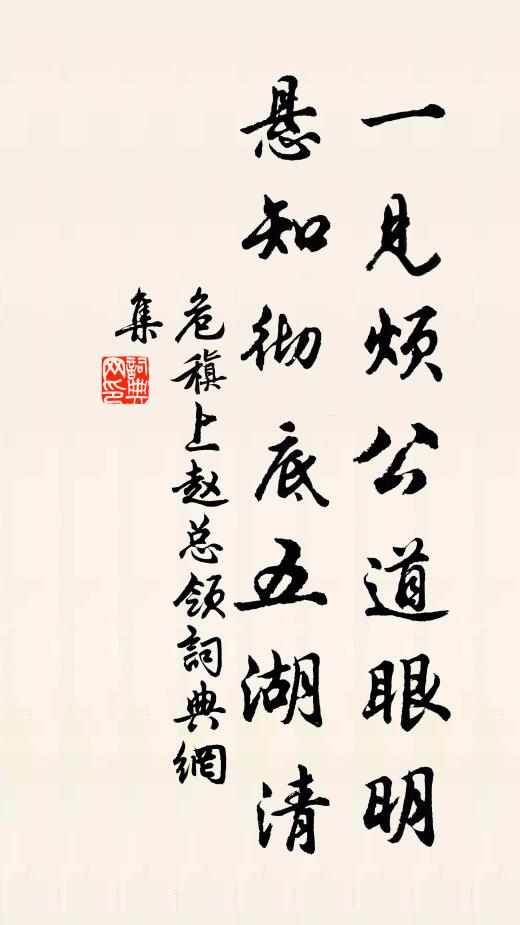 一见烦公道眼明
悬知彻底五湖清
危稹上赵总领詞典網
集
詞典
网印